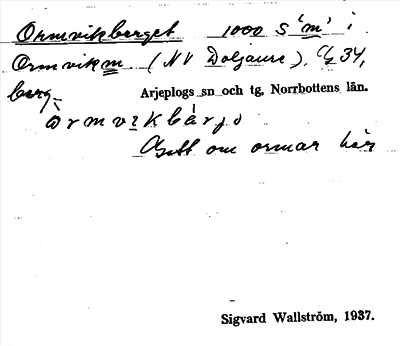 Ormvikberget 1000 s'm' i
Ormvikm (NV Doljaure). 34,
berg.
Arjeplogs sn och tg, Norrbottens län.
ormvikbärjə
Gott om ormar här
Sigvard Wallström, 1937.